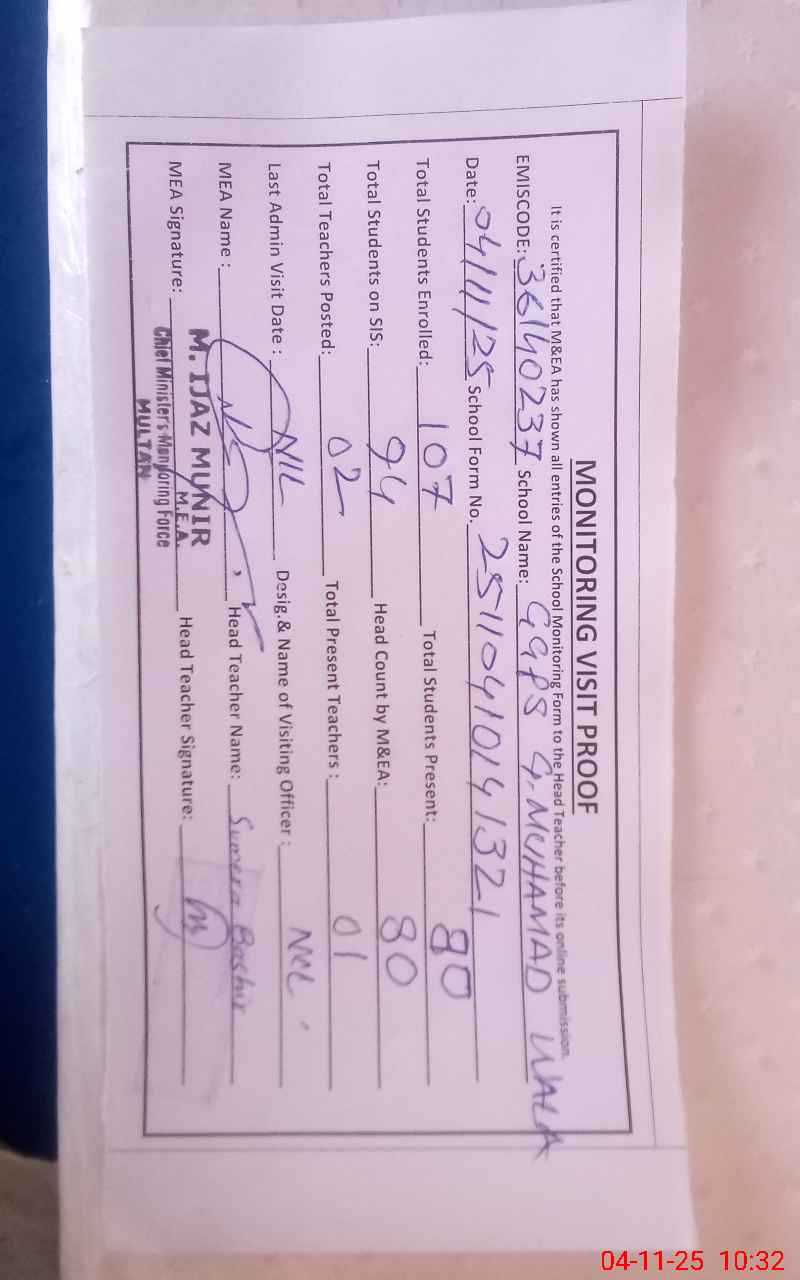 MONITORING VISIT PROOF
It is certified that M&EA has shown all entries of the School Monitoring Form to the Head Teacher before its online submission.
EMISCODE: 36140237 School Name: GGPS G. MUHAMAD WALA
Date: 04/11/25 School Form No. 25110410141321
Total Students Enrolled: 107 Total Students Present: 80
Total Students on SIS: 94 Head Count by M&EA: 80
Total Teachers Posted: 02 Total Present Teachers : 01
Last Admin Visit Date : NIL Desig.& Name of Visiting Officer : NIL
MEA Name : Head Teacher Name: Sumera Bashir
MEA Signature: Head Teacher Signature:
M. IJAZ MUNIR
M.E.A.
Chief Minister's Monitoring Force
MULTAN
04-11-25 10:32